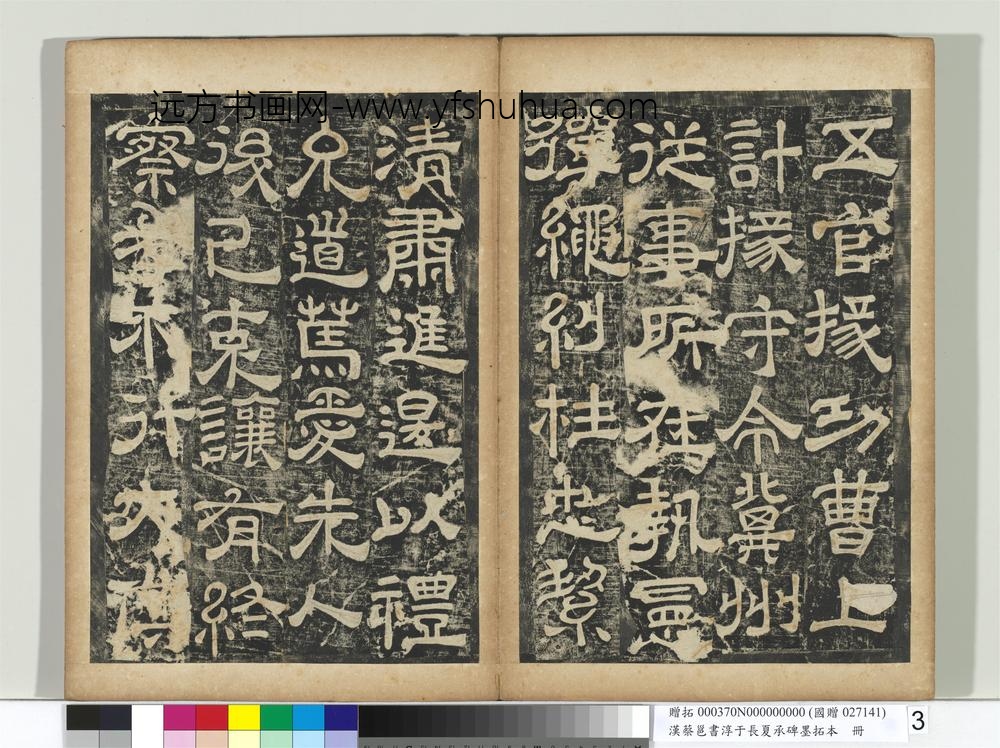 远方书画网-www.yfshuhua.com
五官掾功曹上
計掾守令冀州
從事所在執憲
彈繩糾枉忠絜
清肅進退以禮
允道篤愛先人
後己克讓有終
察孝不行大傅
贈拓 000370N000000000 (國贈 027141)
漢蔡邕書淳于長夏承碑墨拓本 冊
3